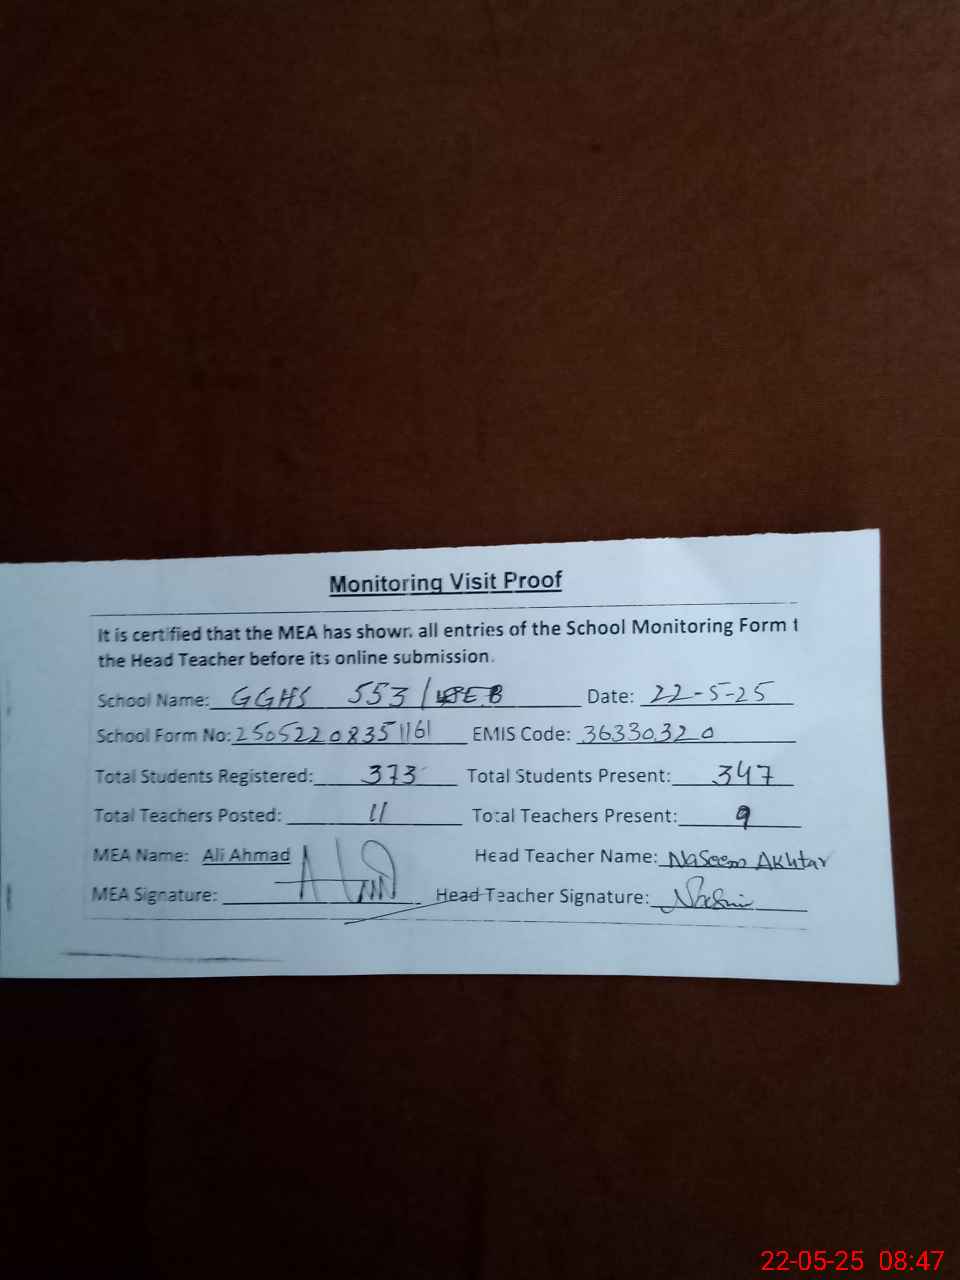 Monitoring Visit Proof
It is certified that the MEA has shown all entries of the School Monitoring Form t
the Head Teacher before its online submission.
School Name: GGHS 553/ EB Date: 22-5-25
School Form No: 250522083511161 EMIS Code: 36330320
Total Students Registered: 373 Total Students Present: 347
Total Teachers Posted: 11 Total Teachers Present: 9
MEA Name: Ali Ahmad Head Teacher Name: Naseem Akhtar
MEA Signature: Head Teacher Signature:
22-05-25 08:47